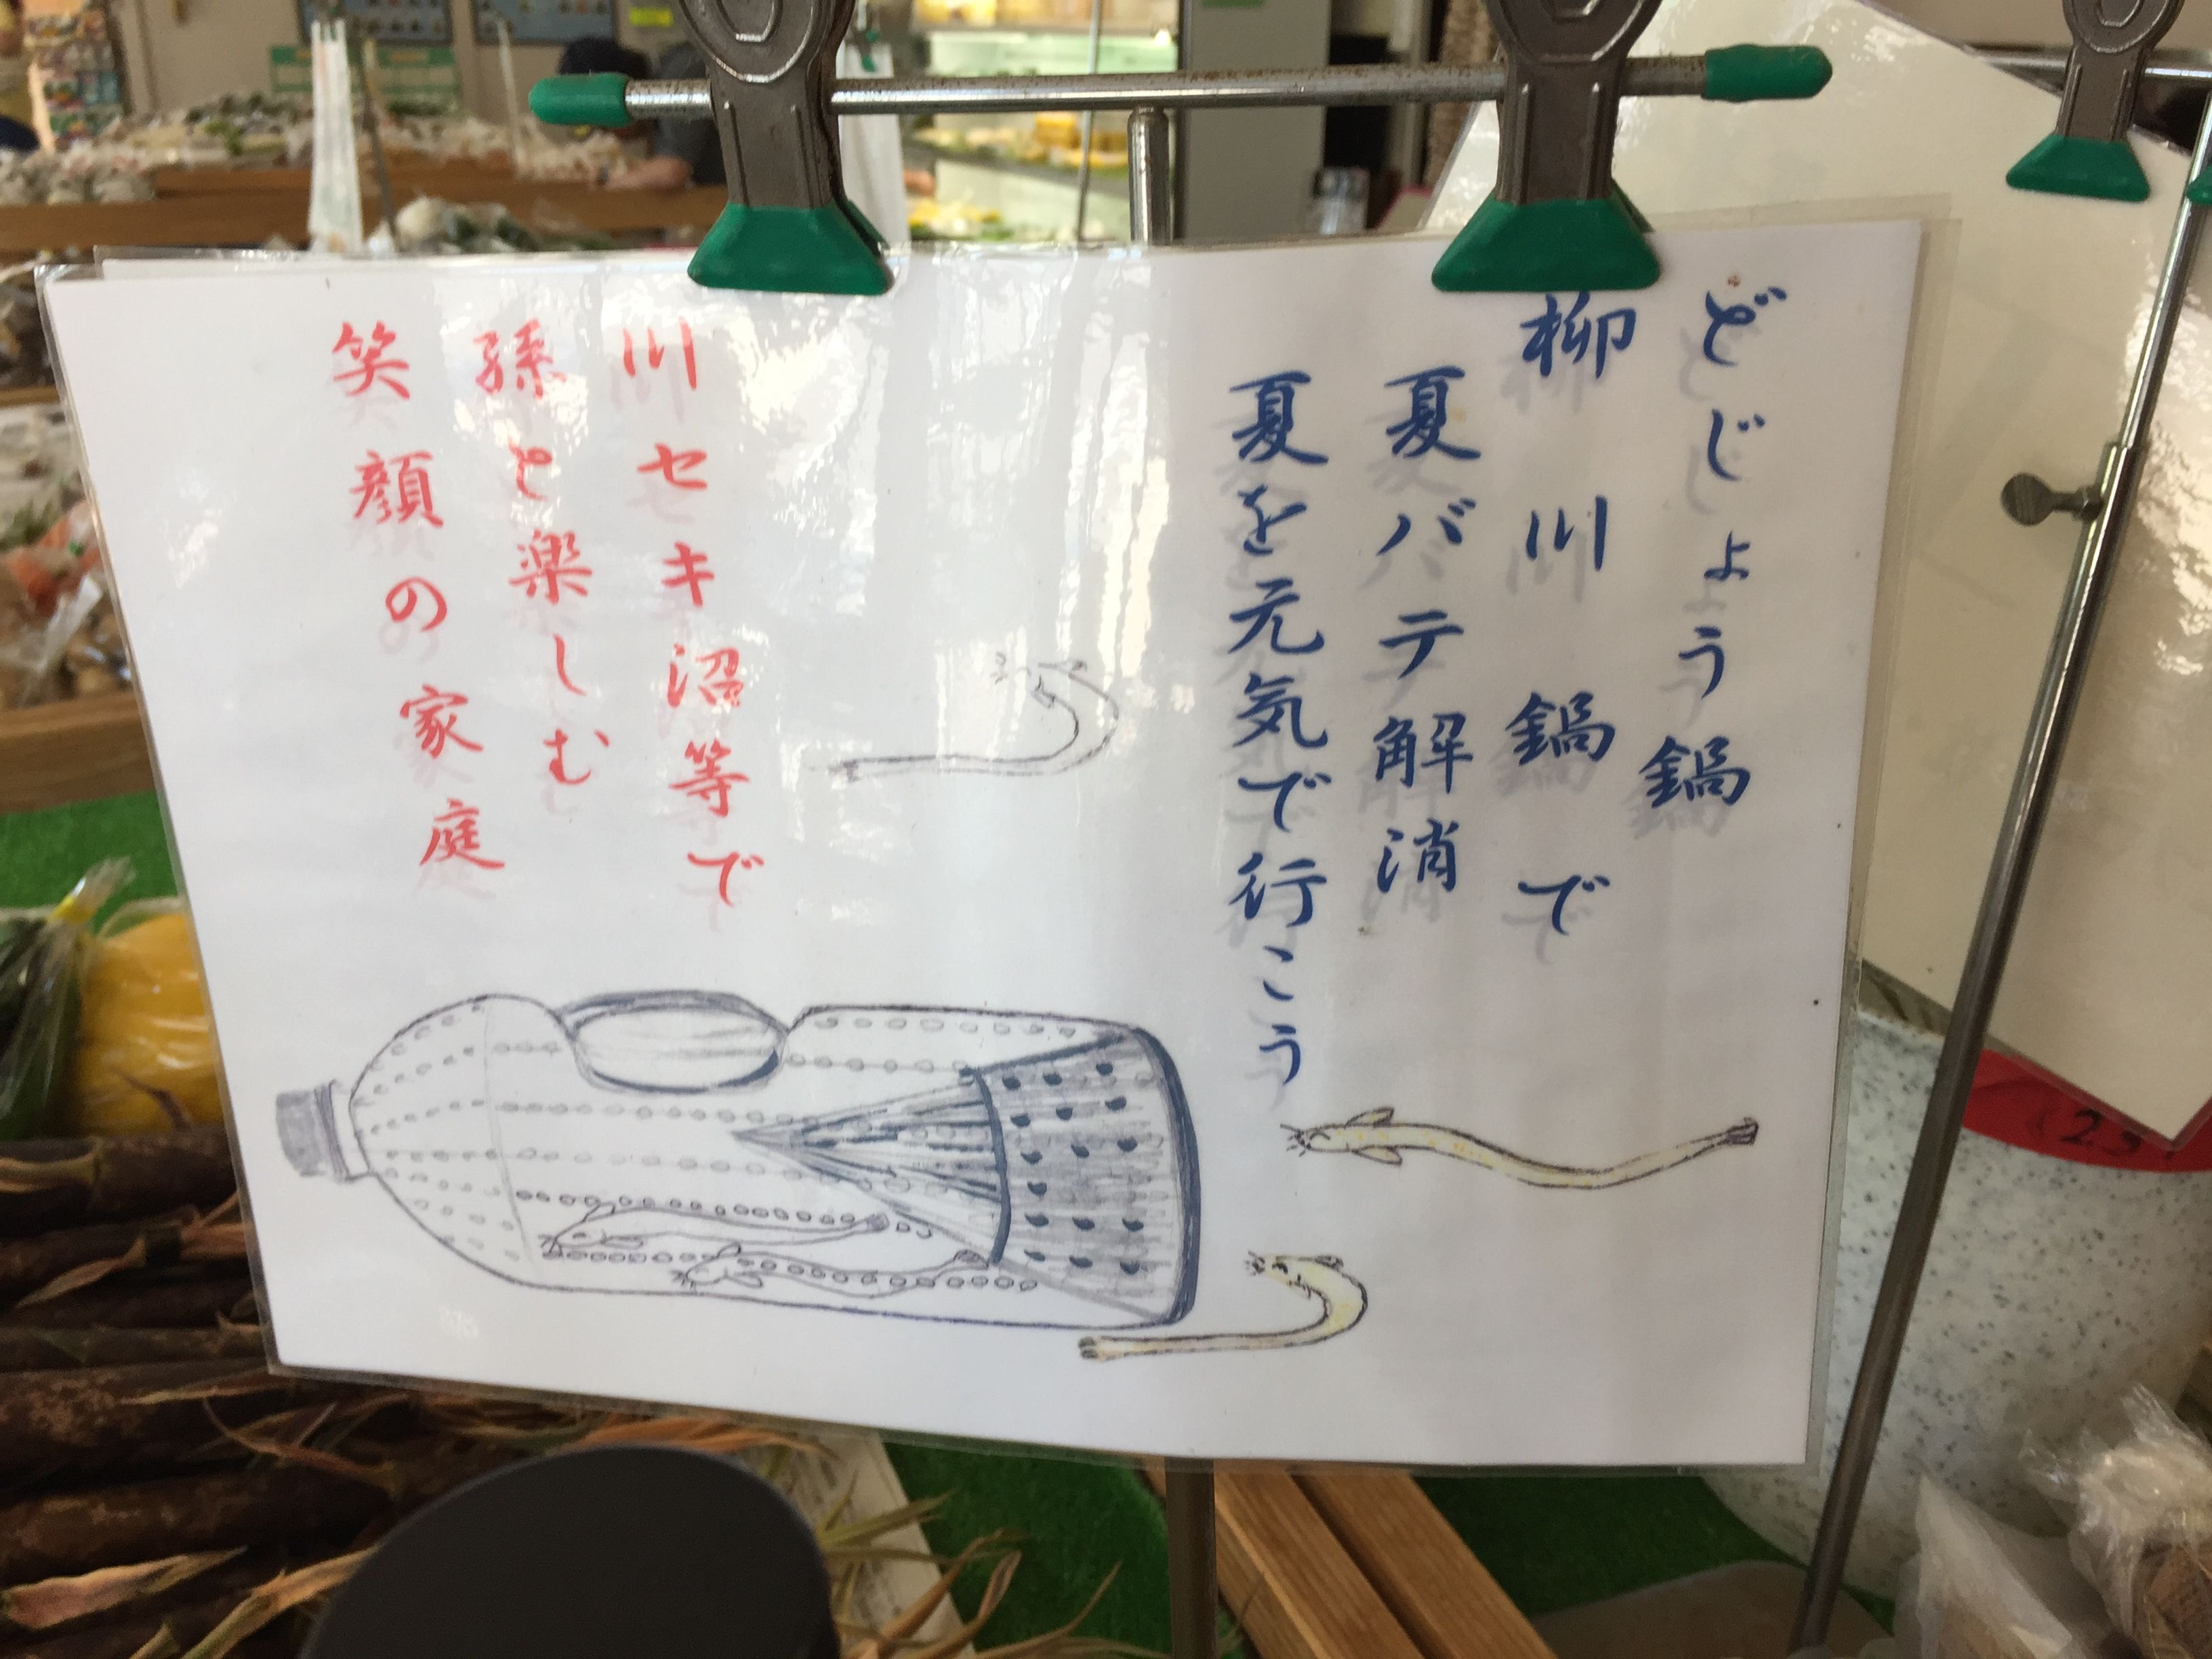 どじょう鍋
柳川鍋で
夏バテ解消
夏を元気で行こう
川セキ沼等で
孫と楽しむ
笑顔の家庭